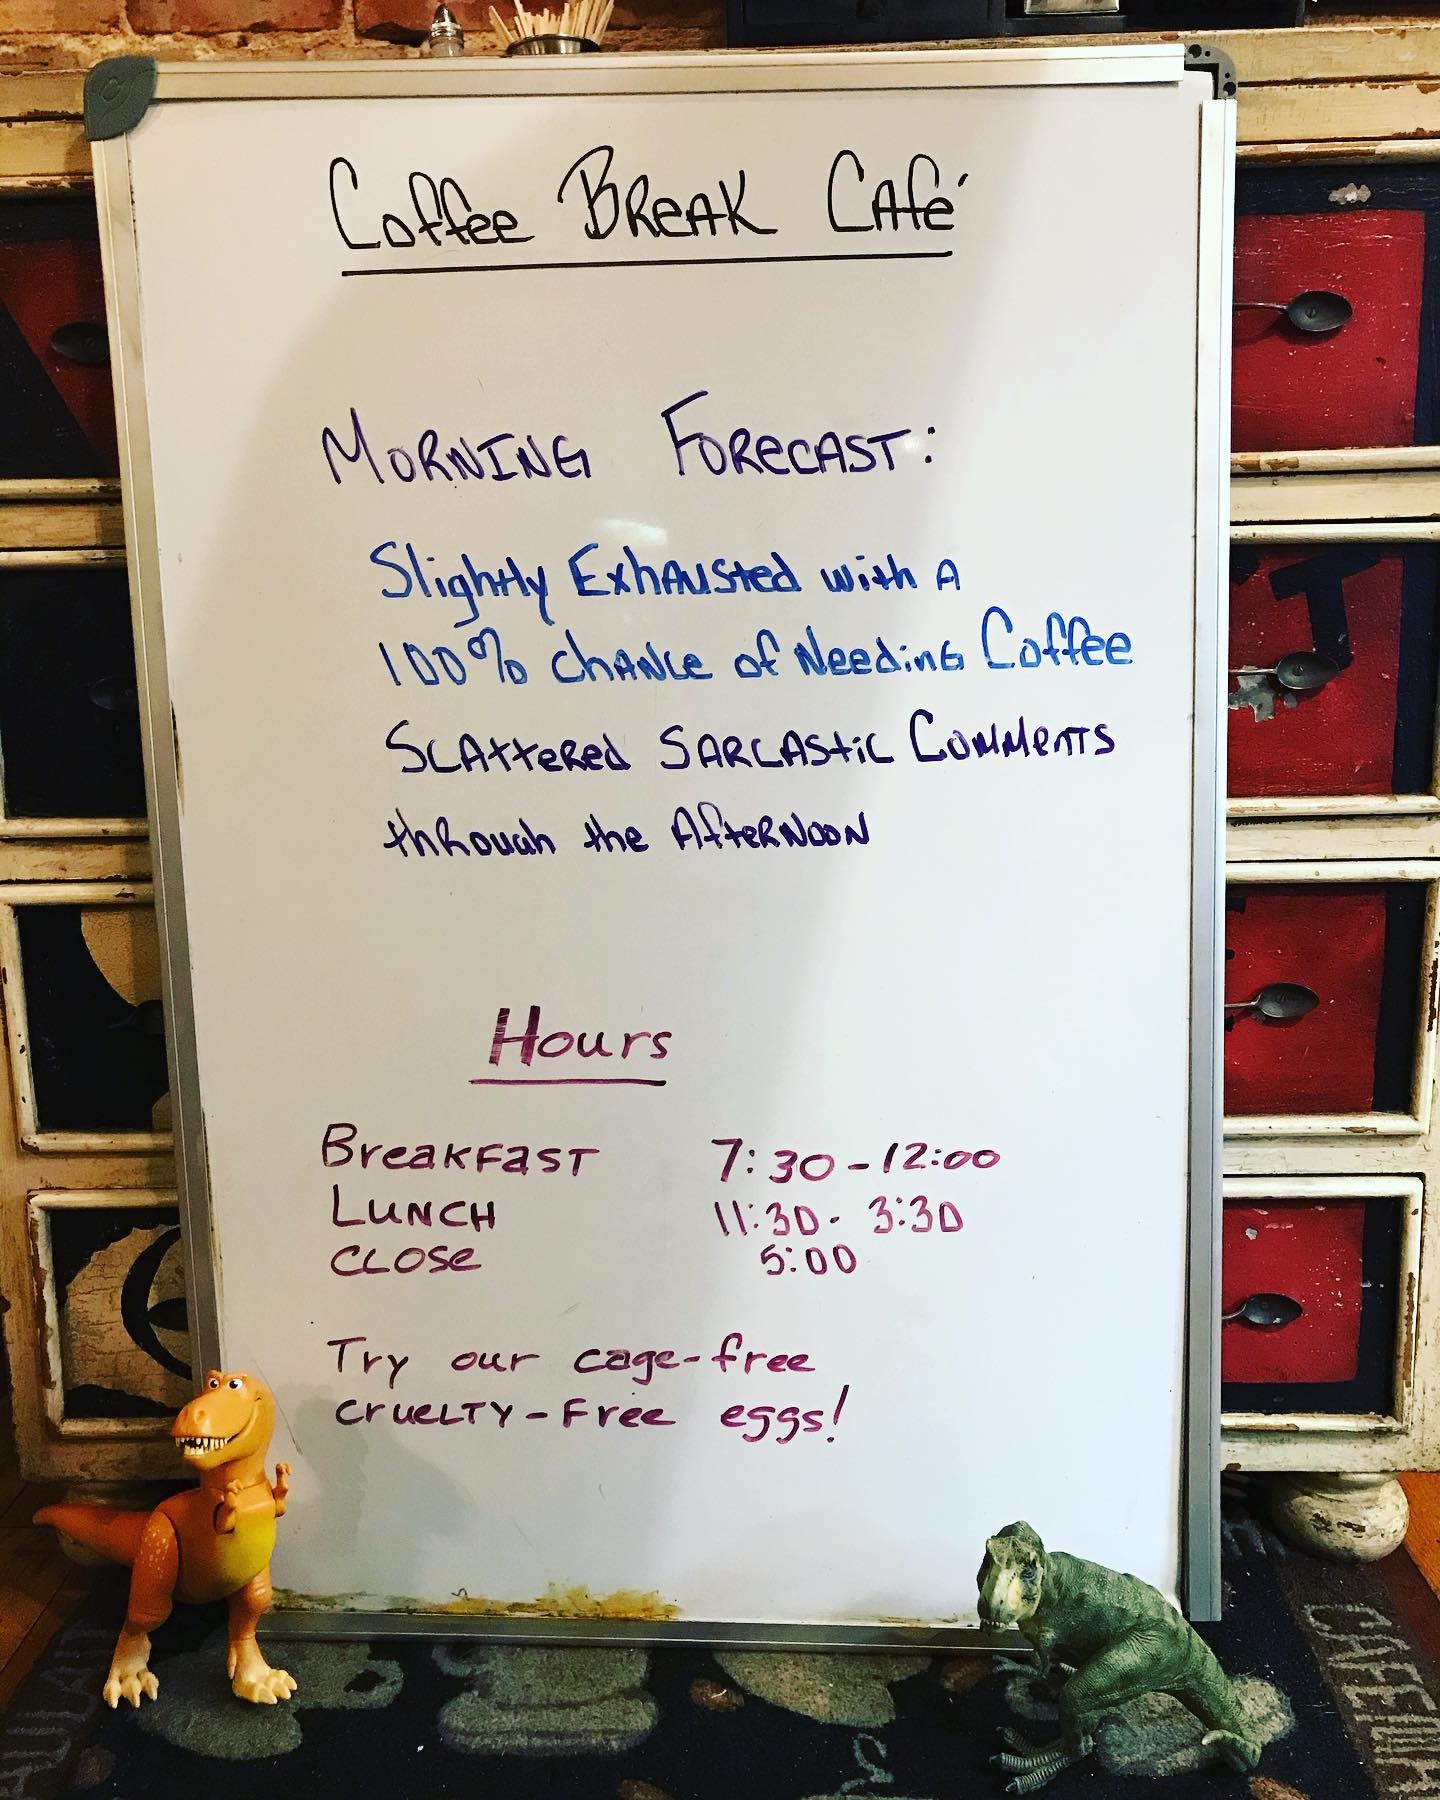 Coffee Break Café
Morning Forecast:
Slightly Exhausted with A
100% chance of Needing Coffee
Scattered Sarcastic Comments
through the Afternoon
Hours
Breakfast 7:30-12:00
Lunch 11:30- 3:30
Close 5:00
Try our cage-free
cruelty-free eggs!